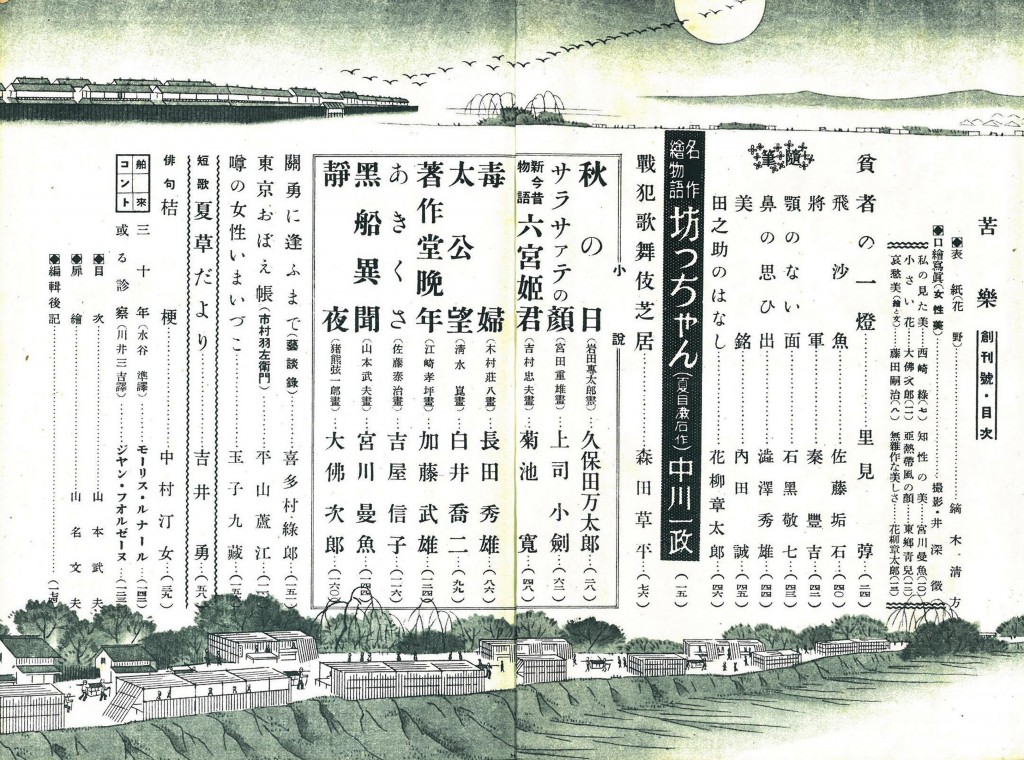 苦樂 創刊號・目次
◆表紙(花野)……鏑木清方
◆口繪寫眞(女性美)……撮影・井深徴
私の見た美…西崎綠(七) 知性の美…宮川曼魚(一〇)
小さい花…大佛次郎(一一) 亜熱帶風の顏…東鄕青兒(一二)
哀愁美(繪と文)…藤田嗣治(八) 無雜作な美しさ…花柳章太郎(一三)
貧者の一燈……里見弴(三四)
隨筆
飛沙魚……佐藤垢石(四〇)
將軍……秦豐吉(四二)
顎のない面……石黑敬七(四三)
鼻の思ひ出……澁澤秀雄(四四)
美銘……內田誠(四五)
田之助のはなし……花柳章太郎(四六)
名作繪物語 坊っちゃん(夏目漱石作)中川一政(一五)
戰犯歌舞伎芝居……森田草平(七六)
小說
秋の日(岩田專太郎畫)久保田万太郎(二八)
サラサァテの顏(宮田重雄畫)上司小劍(六二)
新今昔物語 六宮姬君(吉村忠夫畫)菊池寬(四八)
毒婦(木村莊八畫)長田秀雄(八六)
太公望(淸水崑畫)白井喬二(九九)
著作堂晩年(江崎孝坪畫)加藤武雄(一二四)
あきくさ(佐藤泰治畫)吉屋信子(一一六)
黑船異聞(山本武夫畫)宮川曼魚(一四四)
靜夜(猪熊弦一郎畫)大佛次郎(一六〇)
關勇に逢ふまで(藝談錄)……喜多村綠郎(一五二)
東京おぼえ帳(市村羽左衞門)……平山蘆江
噂の女性いまいづこ……玉子九藏
短歌 夏草だより……吉井勇(五八)
俳句 桔梗……中村汀女
舶來コント
三十年(水谷準譯)……モーリス・ルナール
或る診察(川井三吉譯)……ジヤン・フオルゼーヌ
◆目次……山本武夫
◆扉繪……山名文夫
◆編輯後記